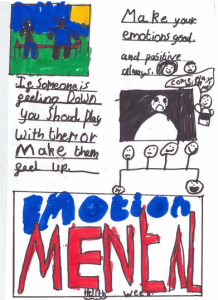 If Someone is
feeling Down
you should play
with them or
Make them
feel up.
Make your
emotions good
and positive
always.
EMOTION
MENTAL
Health week